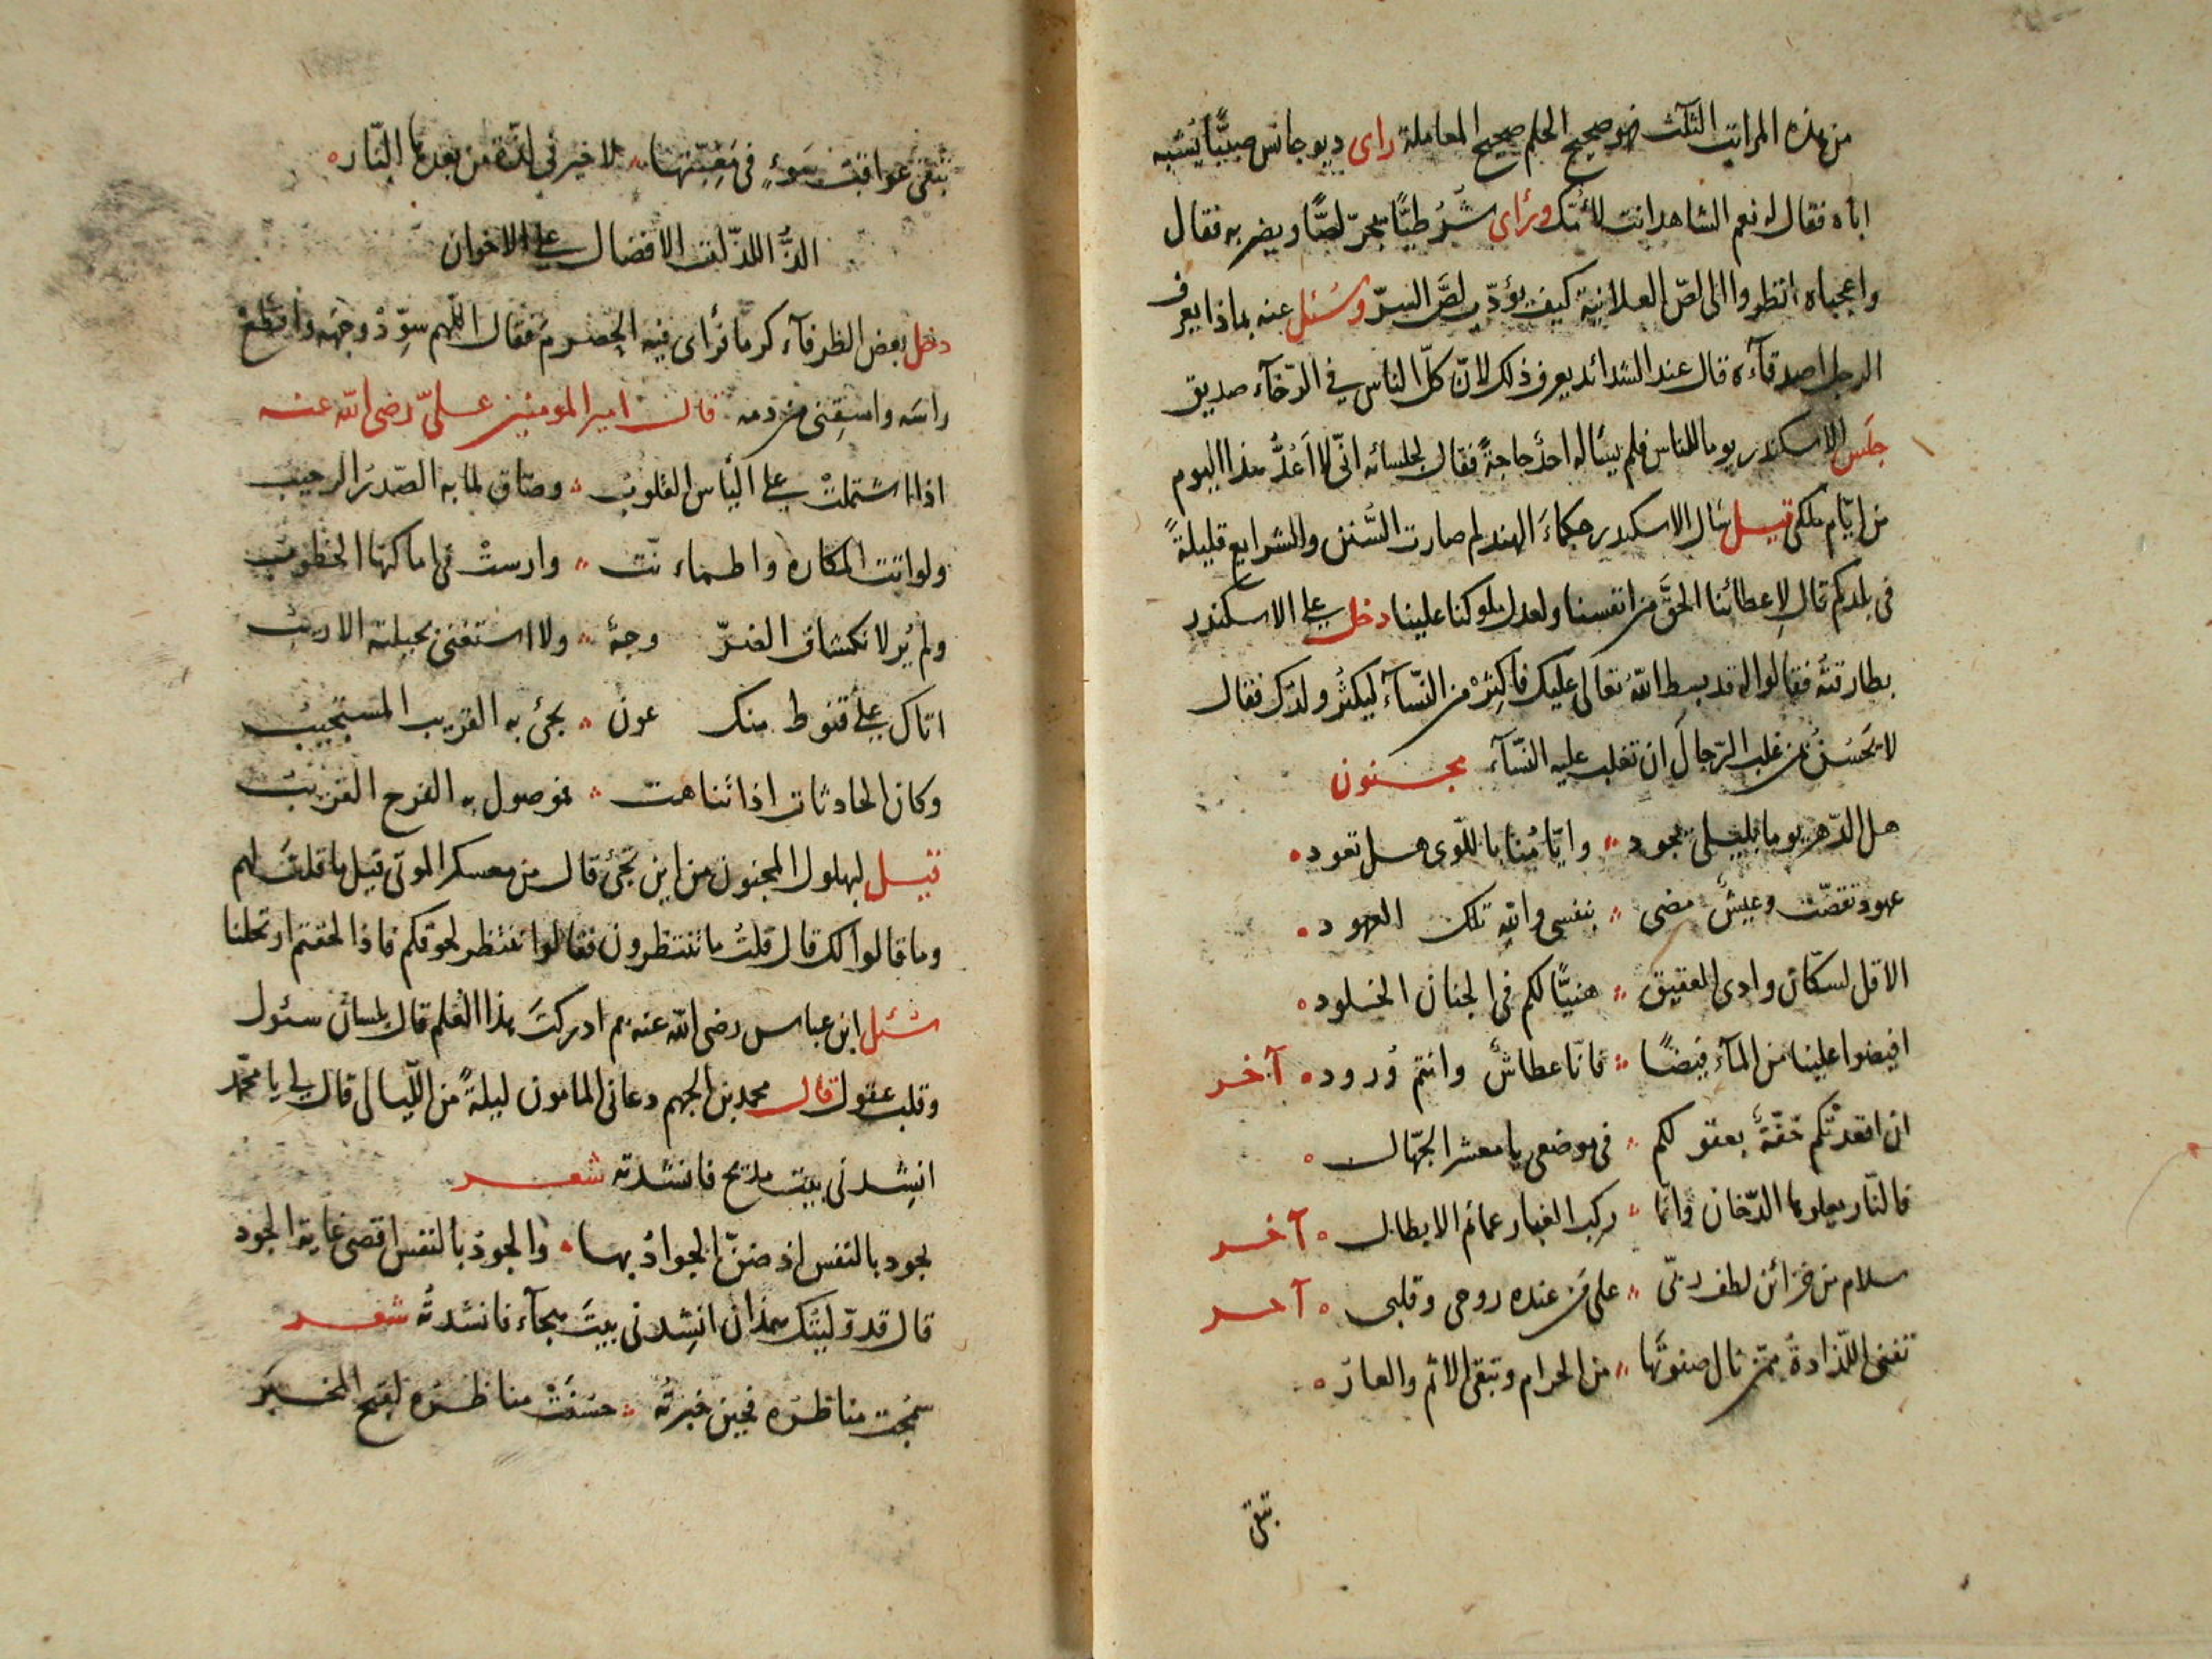 من هذه المراتب الثلث فهو صحيح الحلم صحيح المعاملة رای ديوجانس صبيًّا يشبه
اباه فقال له نعم الشاهد انت لأمّك ورأى شُرطيًّا يجرّ لصًّا ويضربه فقال
واعجباه انظروا الى لصّ العلانية كيف يؤدّب لصَّ السرّ وسُئل عنه بماذا يعرف
الرجل اصدقآءه قال عند الشدائد يعرف ذلك لانّ كلّ الناس في الرّخآء صديق
جلس الاسكندر يوما للناس فلم يسأله احدٌ حاجةً فقال لجلسائه انّى لا اَعُدُّ هذا اليوم
من ايّام ملكى قيل سال الاسكندر حكماءَ الهند لم صارت السُّنن والشرايع قليلةً
فى بلدكم قال لِاعطائنا الحقَّ من انفسنا ولعدل ملوكنا علينا دخل على الاسكندر
بطارقته فقالوا له قد بسط اللّه تعالى عليك فاكثِرْ من النّسآء ليكثُر ولدك فقال
لا يَحسُن بمن غلب الرّجالَ ان تغلب عليه النّسآء مجنون
هل الدّهر يوما بليلى يجود وايّامُنا باللّوى هل تعود
عهود تقضّت وعيشٌ مضى بنفسى واللّه تلك العهود
الا قل لسكّان وادى العقيق هنيًّا لكم فى الجنان الخلود
افيضوا علينا من المآء فيضًا فانّا عطاشٌ وانتم وُرود آخر
ان اقعدتْكم خفّةٌ بعقولكم فى موضعى يا معشر الجهّال
فالنّار يعلوها الدّخان وانّما ركب الغبار عمائم الابطال آخر
سلام من خزائن لطف ربّى على من عنده روحى وقلبى آخر
تفنى اللّذاذة ممّن نال صفوتَها من الحرام وتبقى الاثم والعار
تبقى
تبقى عواقبُ سوءٍ فى مغبّتها لا خير فى لذّة من بعدها النّار
الذُّ اللذّات الافضال على الاخوان
دخل بعض الظرفآء كرما فرأى فيه الحصرم فقال اللّهم سوِّدْ وجهه واقطعْ
راسَه واسقِنى من دمه قال امير المومنين علىّ رضى اللّه عنه
اذا اشتملتْ على اليأس القلوبُ وضاق لما به الصّدرُ الرحيب
ولواتت المكاره واطماءنّت وارستْ فى اماكنها الخطوبُ
ولم يُر لانكشاف الضرّ وجهٌ ولا استغنى بحيلته الاريبُ
اتاك على قنوط منك عون يجئ به القريب المستجيبُ
وكان الحادثات اذا تناهت فموصول به الفرج القريبُ
قيل لبهلول المجنون من اين تجئ قال من معسكر الموتى قيل ما قلتَ لهم
وما قالوا لك قال قلتُ ما تنتظرون فقالوا ننتظر لحوقكم فاذا لحقتم ارتحلنا
سُئل ابن عباس رضى اللّه عنه بم ادركتَ هذا العلم قال بلسان سئول
وقلب عقول قال محمد بن الجهم دعانى المامون ليلةً من اللّيالى قال لى يا محمّد
انشِدنى بيت مديح فانشدته شعر
يجود بالنفس اذ ضنّ الجوادُ بها والجودُ بالنفس اقصى غاية الجود
قال قد ولّيتك همذان انشِدنى بيتَ هجآء فانشدتُه شعر
سمجت مناظرُه فحين خبرتُه حسُنتْ مناظرُه لقبح المخبر